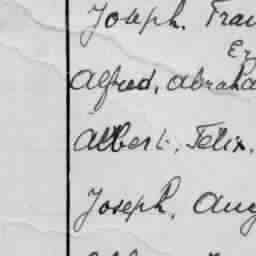 Joseph. Fran
Alfred, Abraha
Albert, Felix.
Joseph, Aug